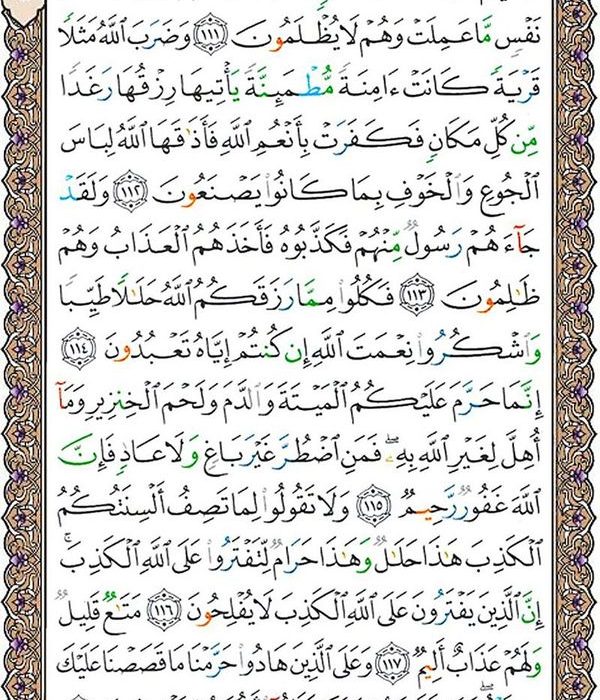 نَفْسٍ مَّا عَمِلَتْ وَهُمْ لَا يُظْلَمُونَ ١١١ وَضَرَبَ اللَّهُ مَثَلًا
قَرْيَةً كَانَتْ ءَامِنَةً مُّطْمَئِنَّةً يَأْتِيهَا رِزْقُهَا رَغَدًا
مِّن كُلِّ مَكَانٍ فَكَفَرَتْ بِأَنْعُمِ اللَّهِ فَأَذَٰقَهَا اللَّهُ لِبَاسَ
الْجُوعِ وَالْخَوْفِ بِمَا كَانُوا يَصْنَعُونَ ١١٢ وَلَقَدْ
جَآءَهُمْ رَسُولٌ مِّنْهُمْ فَكَذَّبُوهُ فَأَخَذَهُمُ الْعَذَابُ وَهُمْ
ظَٰلِمُونَ ١١٣ فَكُلُوا مِمَّا رَزَقَكُمُ اللَّهُ حَلَٰلًا طَيِّبًا
وَاشْكُرُوا نِعْمَتَ اللَّهِ إِن كُنتُمْ إِيَّاهُ تَعْبُدُونَ ١١٤
إِنَّمَا حَرَّمَ عَلَيْكُمُ الْمَيْتَةَ وَالدَّمَ وَلَحْمَ الْخِنزِيرِ وَمَآ
أُهِلَّ لِغَيْرِ اللَّهِ بِهِۦ ۖ فَمَنِ اضْطُرَّ غَيْرَ بَاغٍ وَلَا عَادٍ فَإِنَّ
اللَّهَ غَفُورٌ رَّحِيمٌ ١١٥ وَلَا تَقُولُوا لِمَا تَصِفُ أَلْسِنَتُكُمُ
الْكَذِبَ هَٰذَا حَلَٰلٌ وَهَٰذَا حَرَامٌ لِّتَفْتَرُوا عَلَى اللَّهِ الْكَذِبَ ۚ
إِنَّ الَّذِينَ يَفْتَرُونَ عَلَى اللَّهِ الْكَذِبَ لَا يُفْلِحُونَ ١١٦ مَتَٰعٌ قَلِيلٌ
وَلَهُمْ عَذَابٌ أَلِيمٌ ١١٧ وَعَلَى الَّذِينَ هَادُوا حَرَّمْنَا مَا قَصَصْنَا عَلَيْكَ